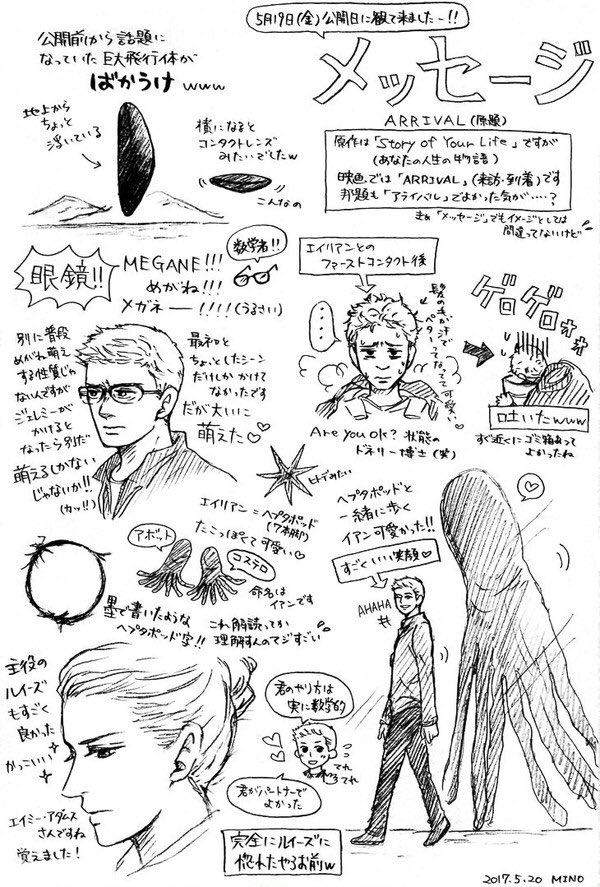 5月19日(金)公開日に観て来ましたー!!
メッセージ
ARRIVAL(原題)
原作は「Story of Your Life」ですが
(あなたの人生の物語)
映画では「ARRIVAL」(来訪・到着)です
邦題も「アライバル」でよかった気が……?
まぁ「メッセージ」でもイメージとしては
間違ってないけど
公開前から話題に
なっていた巨大飛行体が
ばかうけwww
地上から
ちょっと
浮いている
横になると
コンタクトレンズ
みたいでしたw
こんなの
眼鏡!!
MEGANE!!!
めがね!!!
メガネー!!!!(うるさい)
数学者!!
別に普段
めがね萌え
する性質じゃ
ないんですが
ジェレミーが
かけると
なったら別だ
萌えるしかない
じゃないか!!
(カッ!!)
最初と
ちょっとしたシーン
だけしかかけて
なかったです
だが大いに
萌えた♡
エイリアンとの
ファーストコンタクト後
髪の毛が汗で
ペターってなってて可愛い♡
Are you ok? 状態の
ドネリー博士(笑)
ゲロゲロォォ
吐いたwww
すぐ近くにゴミ箱あって
よかったね
ヒトデみたい
エイリアン=ヘプタポッド
(7本脚)
たこっぽくて可愛い♡
アボット
コステロ
命名は
イアンです
墨で書いたような
ヘプタポッド字!!
これ解読ってか
理解すんのマジすごい
ヘプタポッドと
一緒に歩く
イアン可愛かった!!
すごくいい笑顔♡
AHAHA
主役の
ルイーズ
もすごく
良かった
かっこいい
エイミー・アダムス
さんですね
覚えました!
君のやり方は
実に数学的
てれ
てれ
君がパートナーで
よかった
完全にルイーズに
惚れたやろお前w
2017.5.20 MINO